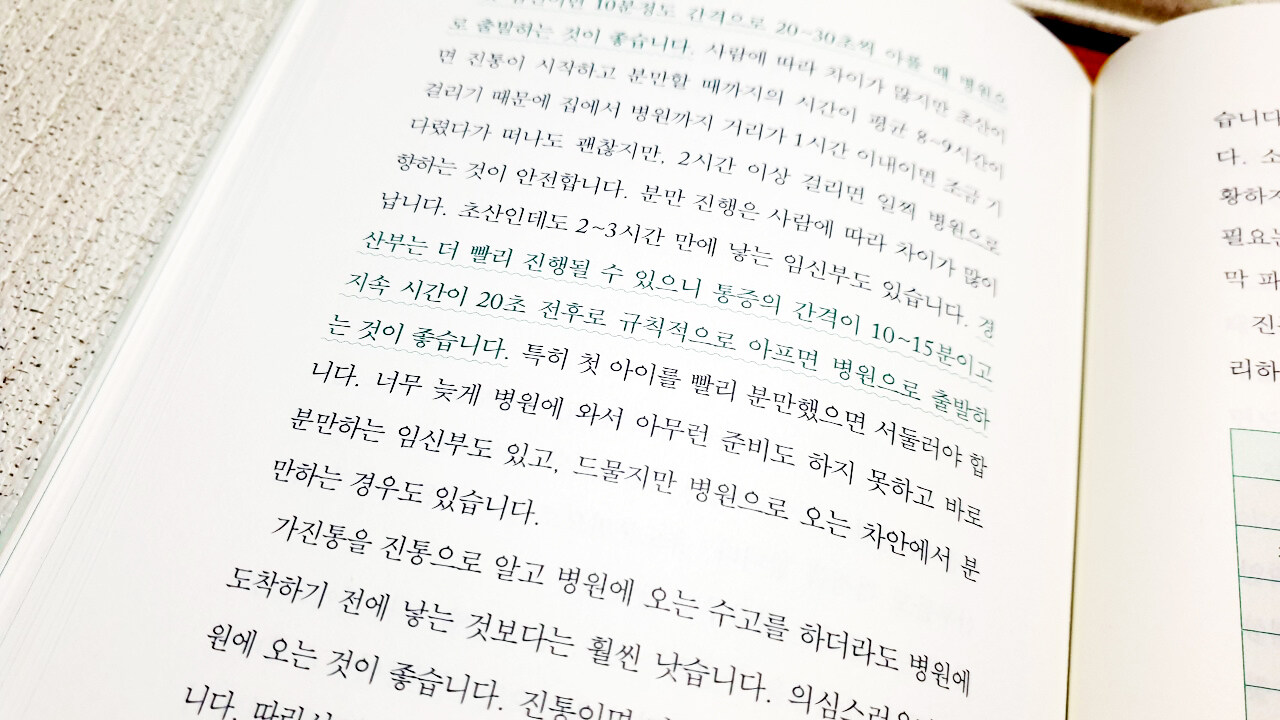 10분정도 간격으로 20~30초씩 아플 때 병원으
로 출발하는 것이 좋습니다. 사람에 따라 차이가 많지만 초산이
면 진통이 시작하고 분만할 때까지의 시간이 평균 8~9시간이
걸리기 때문에 집에서 병원까지 거리가 1시간 이내이면 조금 기
다렸다가 떠나도 괜찮지만, 2시간 이상 걸리면 일찍 병원으로
향하는 것이 안전합니다. 분만 진행은 사람에 따라 차이가 많이
납니다. 초산인데도 2~3시간 만에 낳는 임신부도 있습니다. 경
산부는 더 빨리 진행될 수 있으니 통증의 간격이 10~15분이고
지속 시간이 20초 전후로 규칙적으로 아프면 병원으로 출발하
는 것이 좋습니다. 특히 첫 아이를 빨리 분만했으면 서둘러야 합
니다. 너무 늦게 병원에 와서 아무런 준비도 하지 못하고 바로
분만하는 임신부도 있고, 드물지만 병원으로 오는 차안에서 분
만하는 경우도 있습니다.
가진통을 진통으로 알고 병원에 오는 수고를 하더라도 병원에
도착하기 전에 낳는 것보다는 훨씬 낫습니다. 의심스러우
원에 오는 것이 좋습니다. 진통이면
니다. 따라서
습니다
다. 소
황하지
필요는
막 파
진
리하